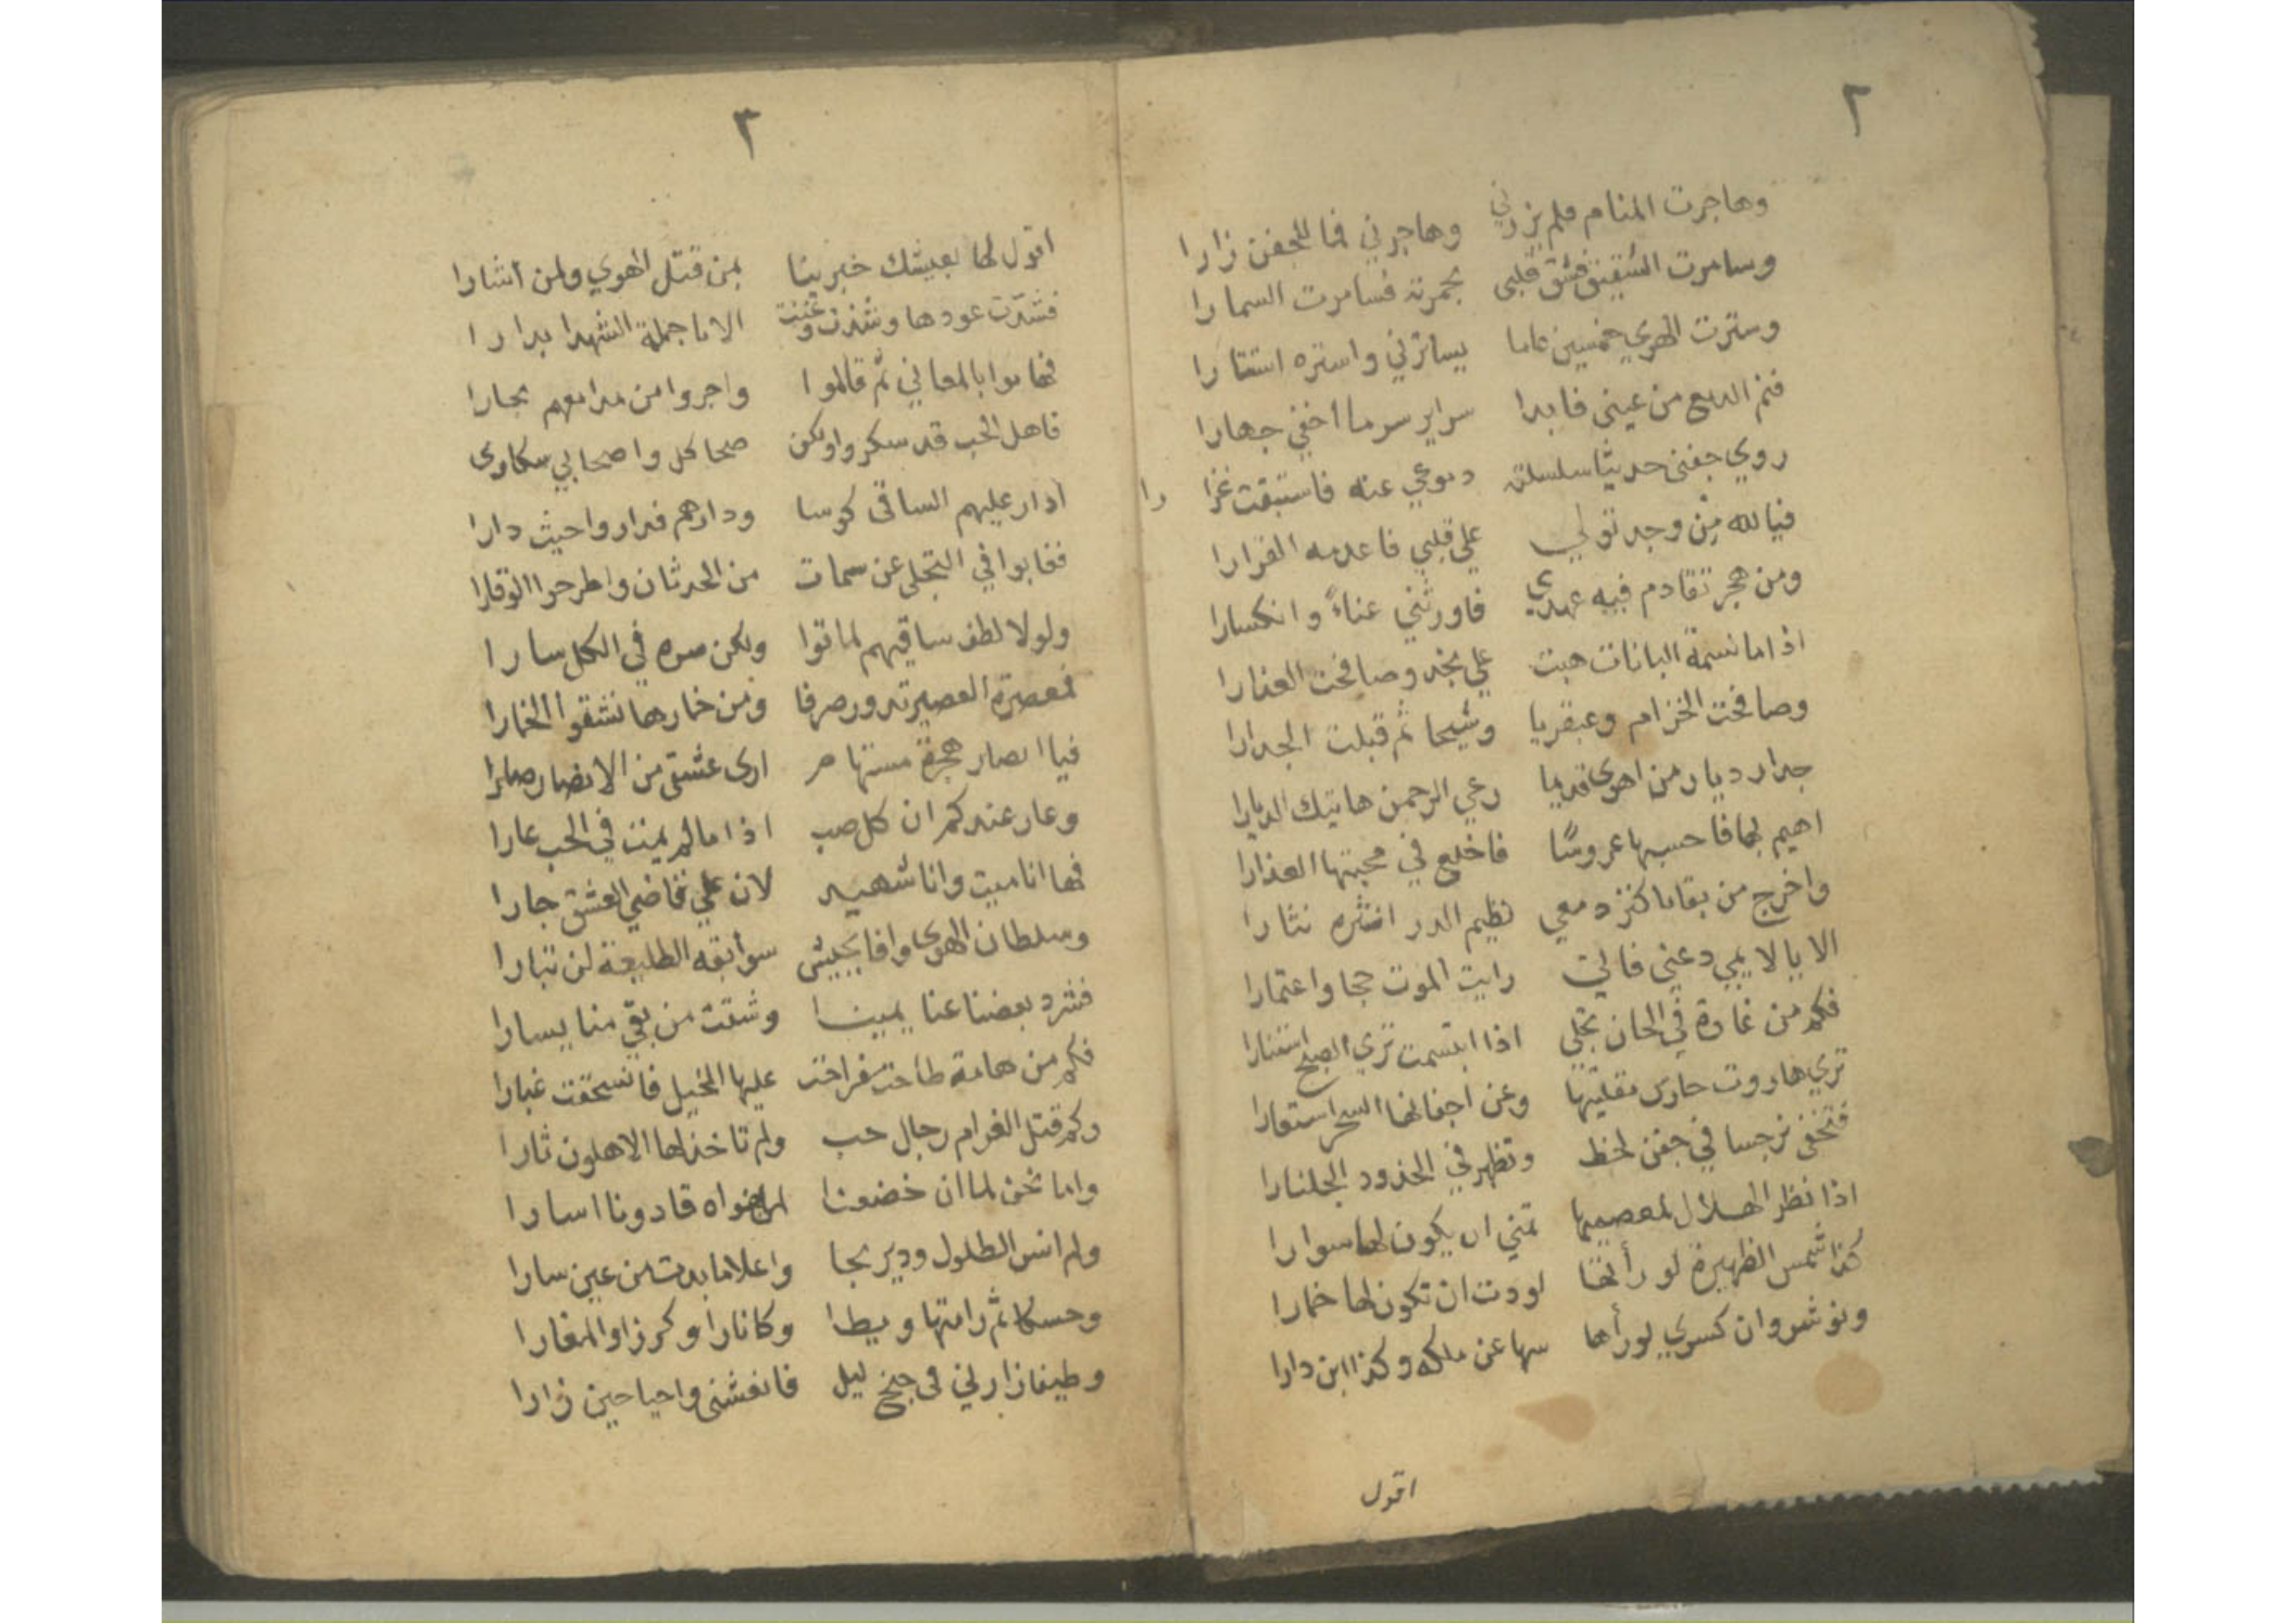 ٢
وهاجرت المنام فلم يزرني وهاجرني فما للجفن زارا
وسامرت الشقيق فشق قلبي بجمرته فسامرت السمارا
وسترت الهوي خمسين عاما يساترني واستره استتارا
فنم الدمع من عيني فابدا سراير سر ما اخفي جهارا
روي جفني حديثا سلسلته دموعي عنه فاستبقت غزا را
فيا لله من وجد تولي علي قلبي فاعدمه القرارا
ومن هجر تقادم فيه عهدي فاورثني عناءً وانكسارا
اذا ما نسمة البانات هبت علي نجد وصافحت العذارا
وصافحت الخزام وعبقريا وشيحا ثم قبلت الجدارا
جدار ديار من اهوى قديما رعي الرحمن هاتيك الديارا
اهيم بها فاحسبها عروسًا فاخلع في محبتها العذارا
واخرج من بقايا كنز دمعي نظيم الدر انثره نثارا
الا يا لايمي دعني فاني رايت الموت حجا واعتمارا
فكم من غادة في الحان تجلي اذا ابتسمت تري الصبح استنارا
تري هاروت حارس مقلتيها وعن اجفانها السحر استعارا
فتخفى نرجسا في جفن لحظ وتظهر في الخدود الجلنارا
اذا نظر الهلال لمعصميها تمني ان يكون لها سوارا
كذا شمس الظهيرة لو رأتها لودت ان تكون لها خمارا
ونوشروان كسري لو رأها سها عن ملكه وكذا ابن دارا
اقول
٣
اقول لها بعيشك خبرينا بمن قتل الهوي ولمن اشارا
فشدّت عودها وشذت وغنت الا يا جملة الشهدا بدارا
فهاموا بالمعاني ثم قالوا واجروا من مدامعهم بحارا
فاهل الحب قد سكروا ولكن صحا كل واصحابي سكاوى
ادار عليهم الساقى كوسا ودارهم فداروا حيث دارا
فغابوا في التجلى عن سمات من الحدثان واطرحوا الوقارا
ولولا لطف ساقيهم لماتوا ولكن سره في الكل سارا
فمعصرة العصير تدور صرفا ومن خمارها نشقوا الخمارا
فيا انصار مستهام ارى عشقى من الانصار صارا
وعار عندكم ان كل صب اذا ما لم يمت في الحب عارا
فها انا ميت وانا شهيد لان علي قاضي العشق جارا
وسلطان الهوى وافا بجيش سوابقه الطليعة لن تبارا
فشرد بعضنا عنا يمينا وشتت من بقي منا يسارا
فكم من هامة طاحت فراحت عليها الخيل فانسحقت غبارا
وكم قتل الغرام رجال حب ولم تاخذ لها الاهلون ثارا
واما نحن لما ان خضعنا لمن اهواه قادونا اسارا
ولم انس الطلول ودير نجا واعلاما بدت من عين سارا
ثم رامتها وكانارا وكرزا والمغارا
وطيفا زارني في جنح ليل فانعشنى واحيا حين زارا